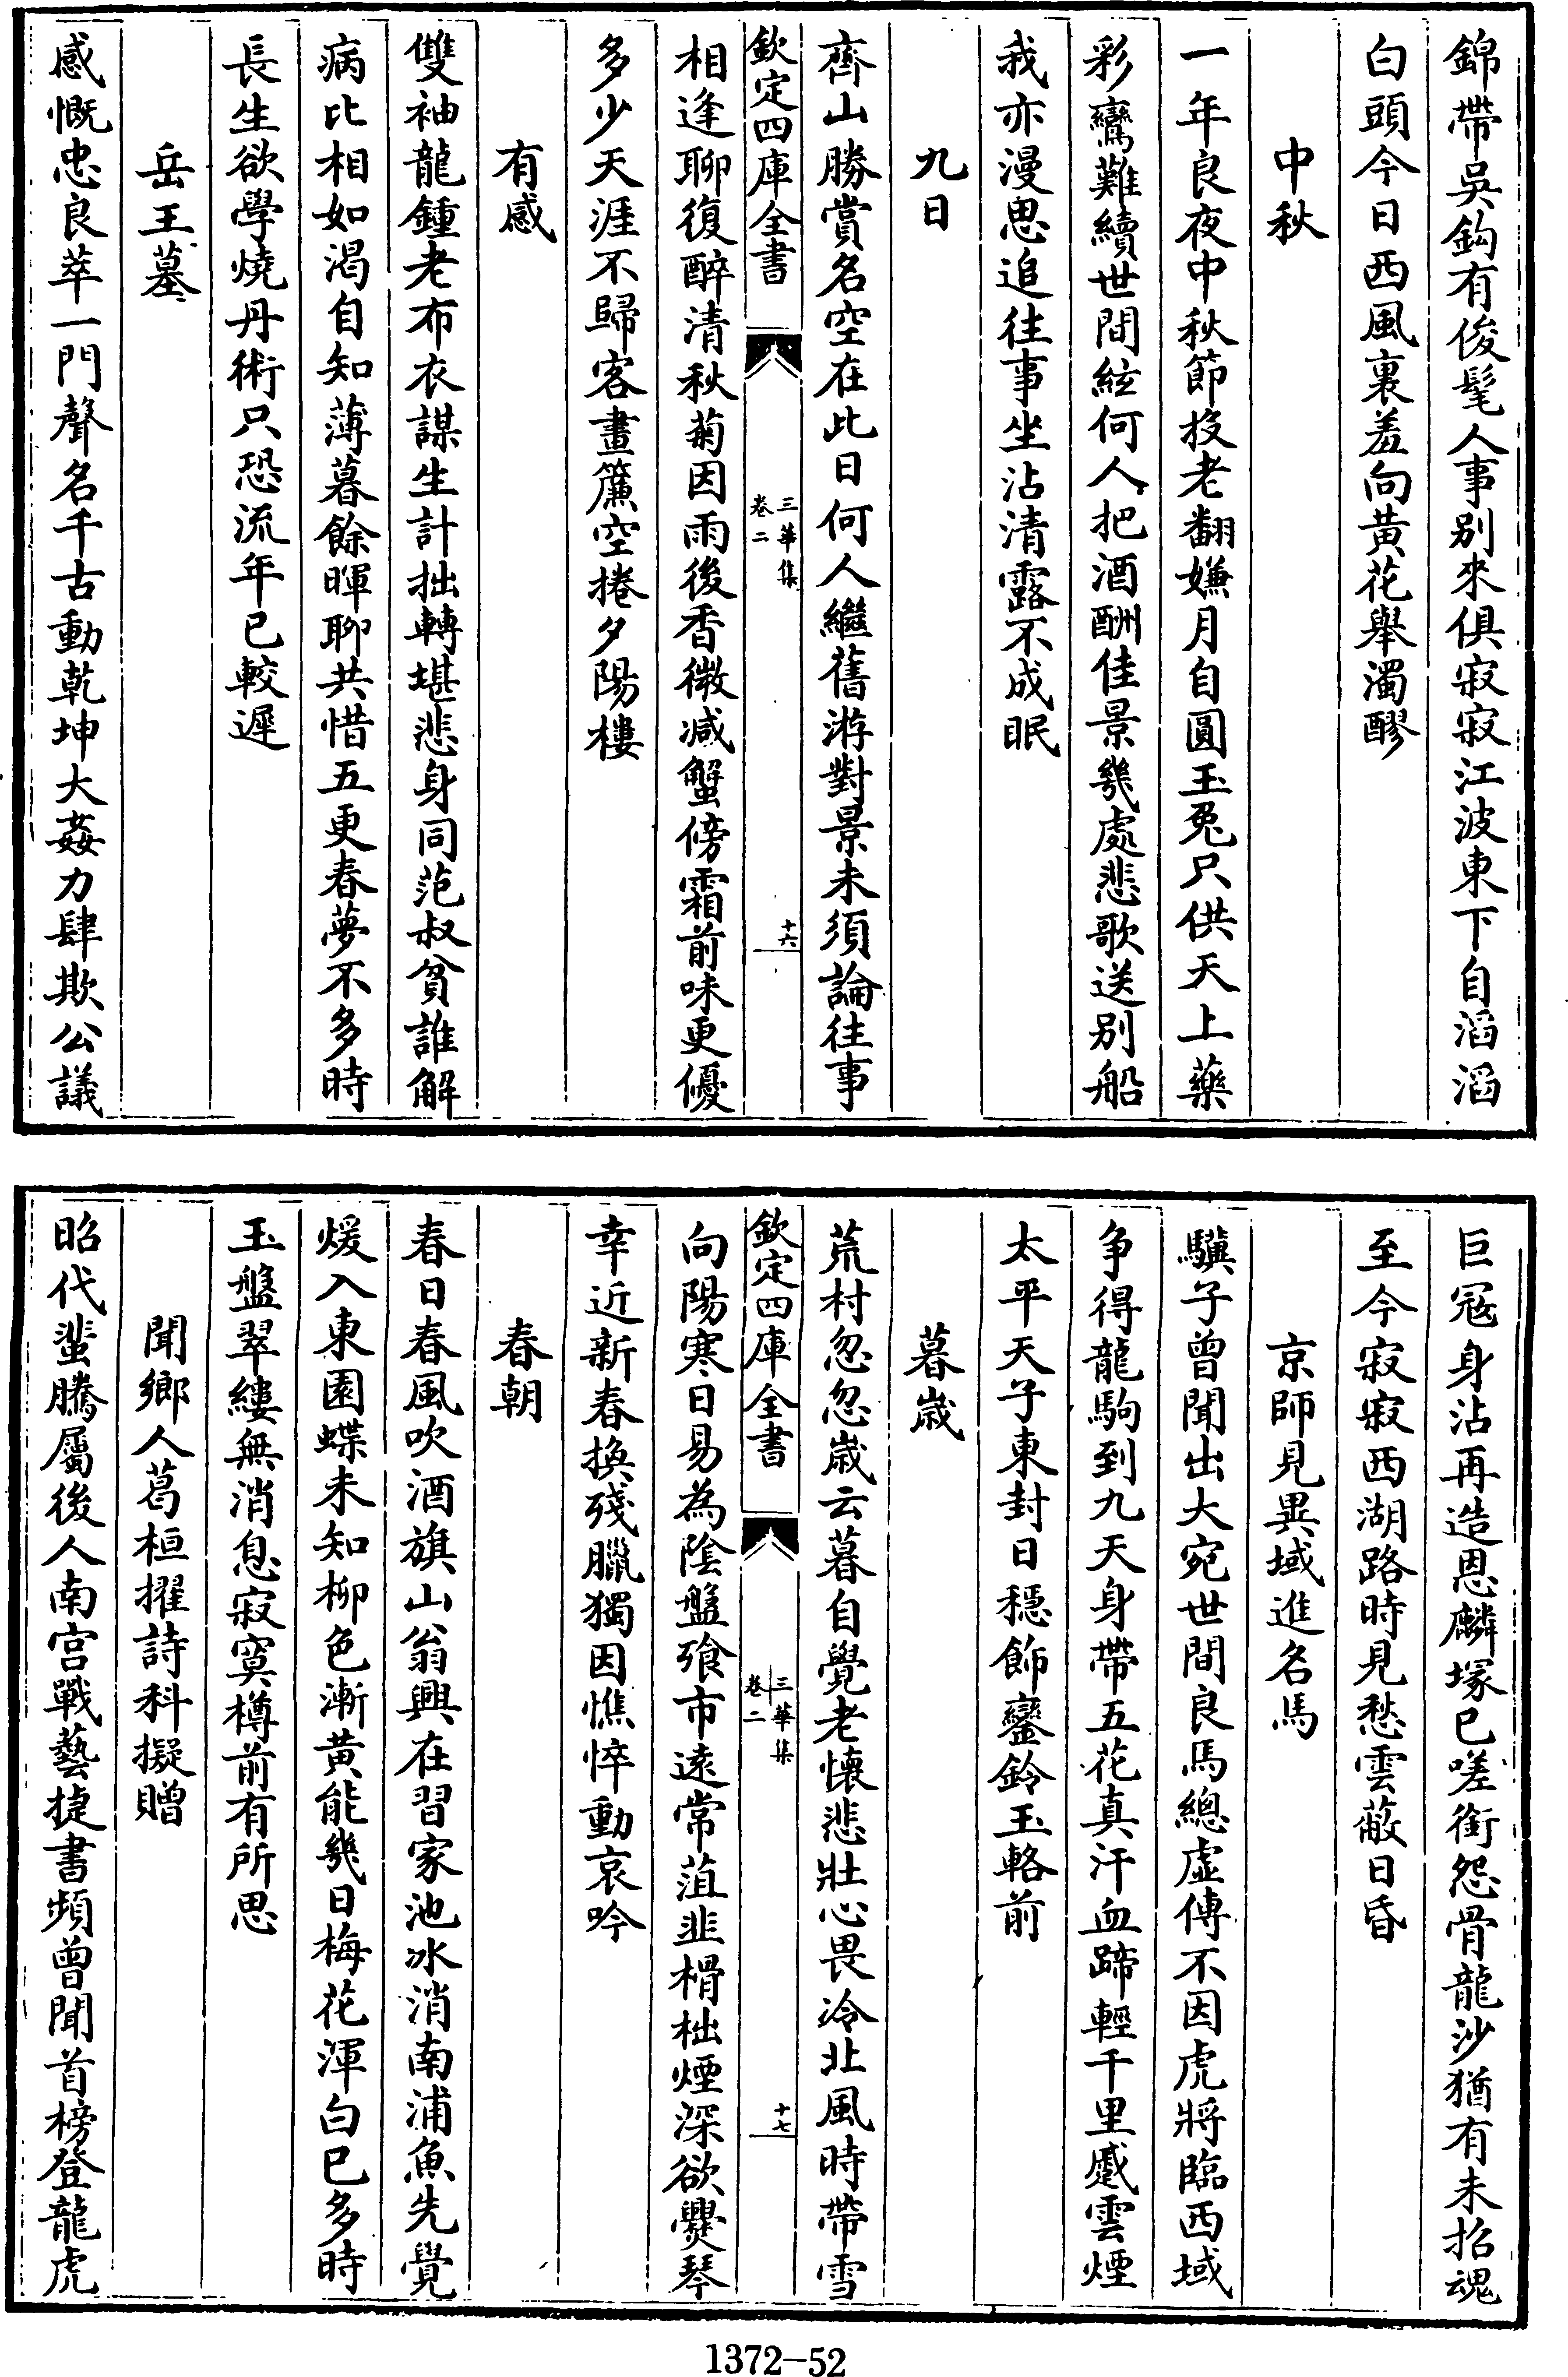 錦帶吳鈎有俊髦人事别來俱寂寂江波東下自滔滔
白頭今日西風裏羞向黄花舉濁醪
中秋
一年良夜中秋節投老翻嫌月自圓玉兎只供天上藥
彩鸞難續世間絃何人把酒酬佳景幾處悲歌送别船
我亦漫思追往事坐沾清露不成眠
九日
齊山勝賞名空在此日何人繼舊游對景未須論往事
欽定四庫全書
三華集
卷二
十六
相逢聊復醉清秋菊因雨後香微減蟹傍霜前味更優
多少天涯不歸客畫簾空捲夕陽樓
有感
雙袖龍鍾老布衣謀生計拙轉堪悲身同范叔貧誰解
病比相如渴自知薄暮餘暉聊共惜五更春夢不多時
長生欲學燒丹術只恐流年已較遲
岳王墓
感慨忠良萃一門聲名千古動乾坤大姦力肆欺公議
巨冦身沾再造恩麟塚已嗟銜怨骨龍沙猶有未招魂
至今寂寂西湖路時見愁雲蔽日昏
京師見異域進名馬
驥子曾聞出大宛世間良馬總虚傳不因虎將臨西域
争得龍駒到九天身帶五花真汗血蹄輕千里蹙雲煙
太平天子東封日穩飾鑾鈴玉輅前
暮嵗
荒村忽忽嵗云暮自覺老懐悲壯心畏冷北風時帶雪
欽定四庫全書
三華集
卷二
十七
向陽寒日易為隂盤飱市逺常菹韭榾柮煙深欲爨琴
幸近新春換殘臘獨因憔悴動哀吟
春朝
春日春風吹酒旗山翁興在習家池冰消南浦魚先覺
煖入東園蝶未知柳色漸黄能幾日梅花渾白已多時
玉盤翠縷無消息寂寞樽前有所思
聞鄉人葛桓擢詩科擬贈
昭代蜚騰屬後人南宫戰藝捷書頻曾聞首榜登龍虎
1372-52